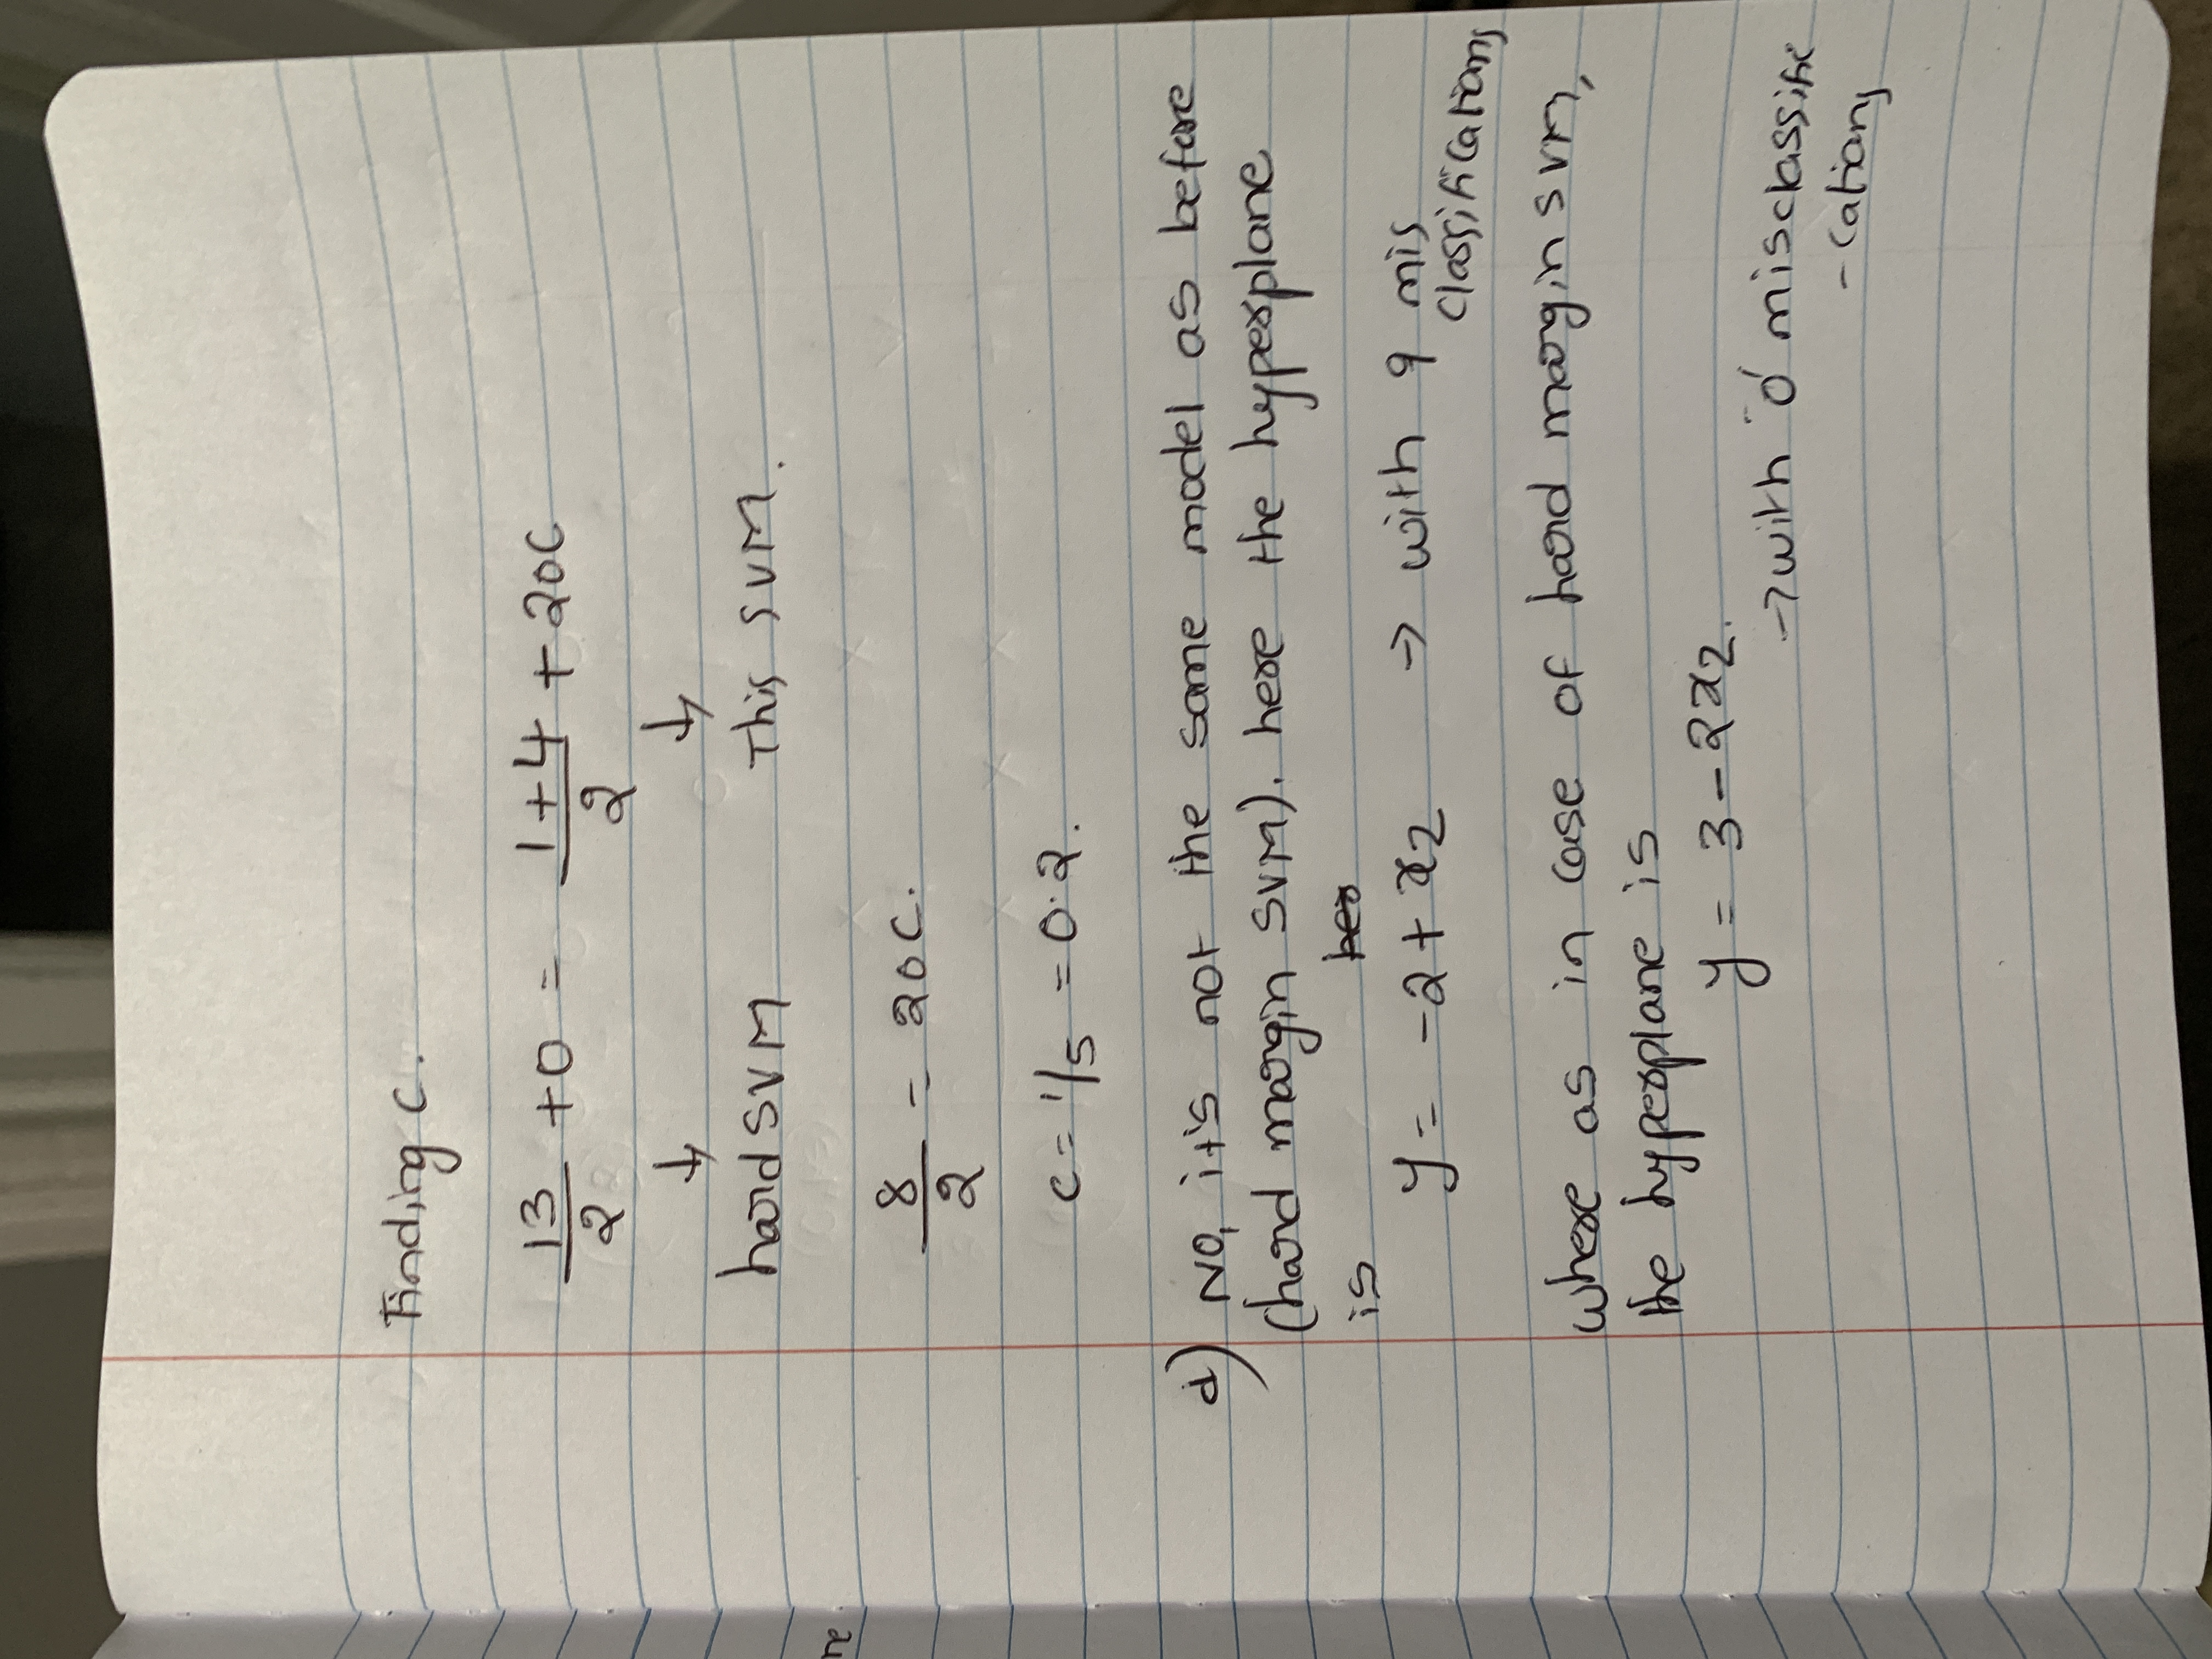 Finding C.
13/2 + 0 = (1+4)/2 + 20C
↓ ↓
hard SVM This SVM.
8/2 = 20C.
c = 1/5 = 0.2.
d) NO, it's not the same model as before
(hard margin SVM). here the hyperplane
is
y = -2 + x2 → with 9 mis
classifications
where as in case of hard margin SVM,
the hyperplane is
y = 3 - 2x2.
→ with '0' missclassifi
- cations
ne